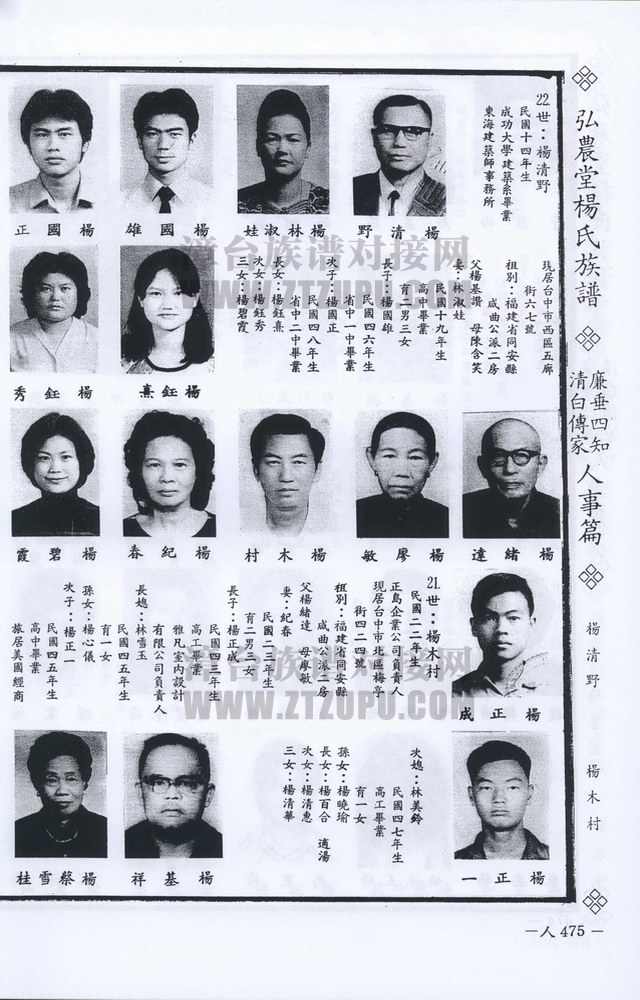 弘農堂楊氏族譜
廉垂四知
清白傳家
人事篇
楊清野
楊木村
22世：楊清野
民國十四年生
成功大學建築系畢業
東海建築師事務所
現居台中市西區五廊
街六七號
祖別：福建省同安縣
咸曲公派二房
父楊基讚 母陳含笑
妻：林淑娃
民國十九年生
高中畢業
育二男三女
長子：楊國雄
民國四六年生
省中一中畢業
次子：楊國正
民國四八年生
省中二中畢業
長女：楊鈺熹
次女：楊鈺秀
三女：楊碧霞
楊清野
楊林淑娃
楊國雄
楊國正
楊鈺熹
楊鈺秀
楊緒達
楊廖敏
楊木村
楊紀春
楊碧霞
21世：楊木村
民國二二年生
正島企業公司負責人
現居台中市北區梅亭
街四二四號
祖別：福建省同安縣
咸曲公派二房
父楊緒達 母廖敏
妻：紀春
民國二三年生
育二男三女
長子：楊正成
民國四三年生
高工畢業
雅凡室內設計
有限公司負責人
長媳：林雪玉
民國四五年生
育一女
孫女：楊心儀
次子：楊正一
民國四五年生
高中畢業
旅居美國經商
楊正成
次媳：林美鈴
民國四七年生
高工畢業
育一女
孫女：楊曉瑜
長女：楊百合 適湯
次女：楊清惠
三女：楊清華
楊正一
楊基祥
楊蔡雪桂
漳台族谱对接网
WWW.ZTZUPU.COM
漳台族谱对接网
WWW.ZTZUPU.COM
－人 475－